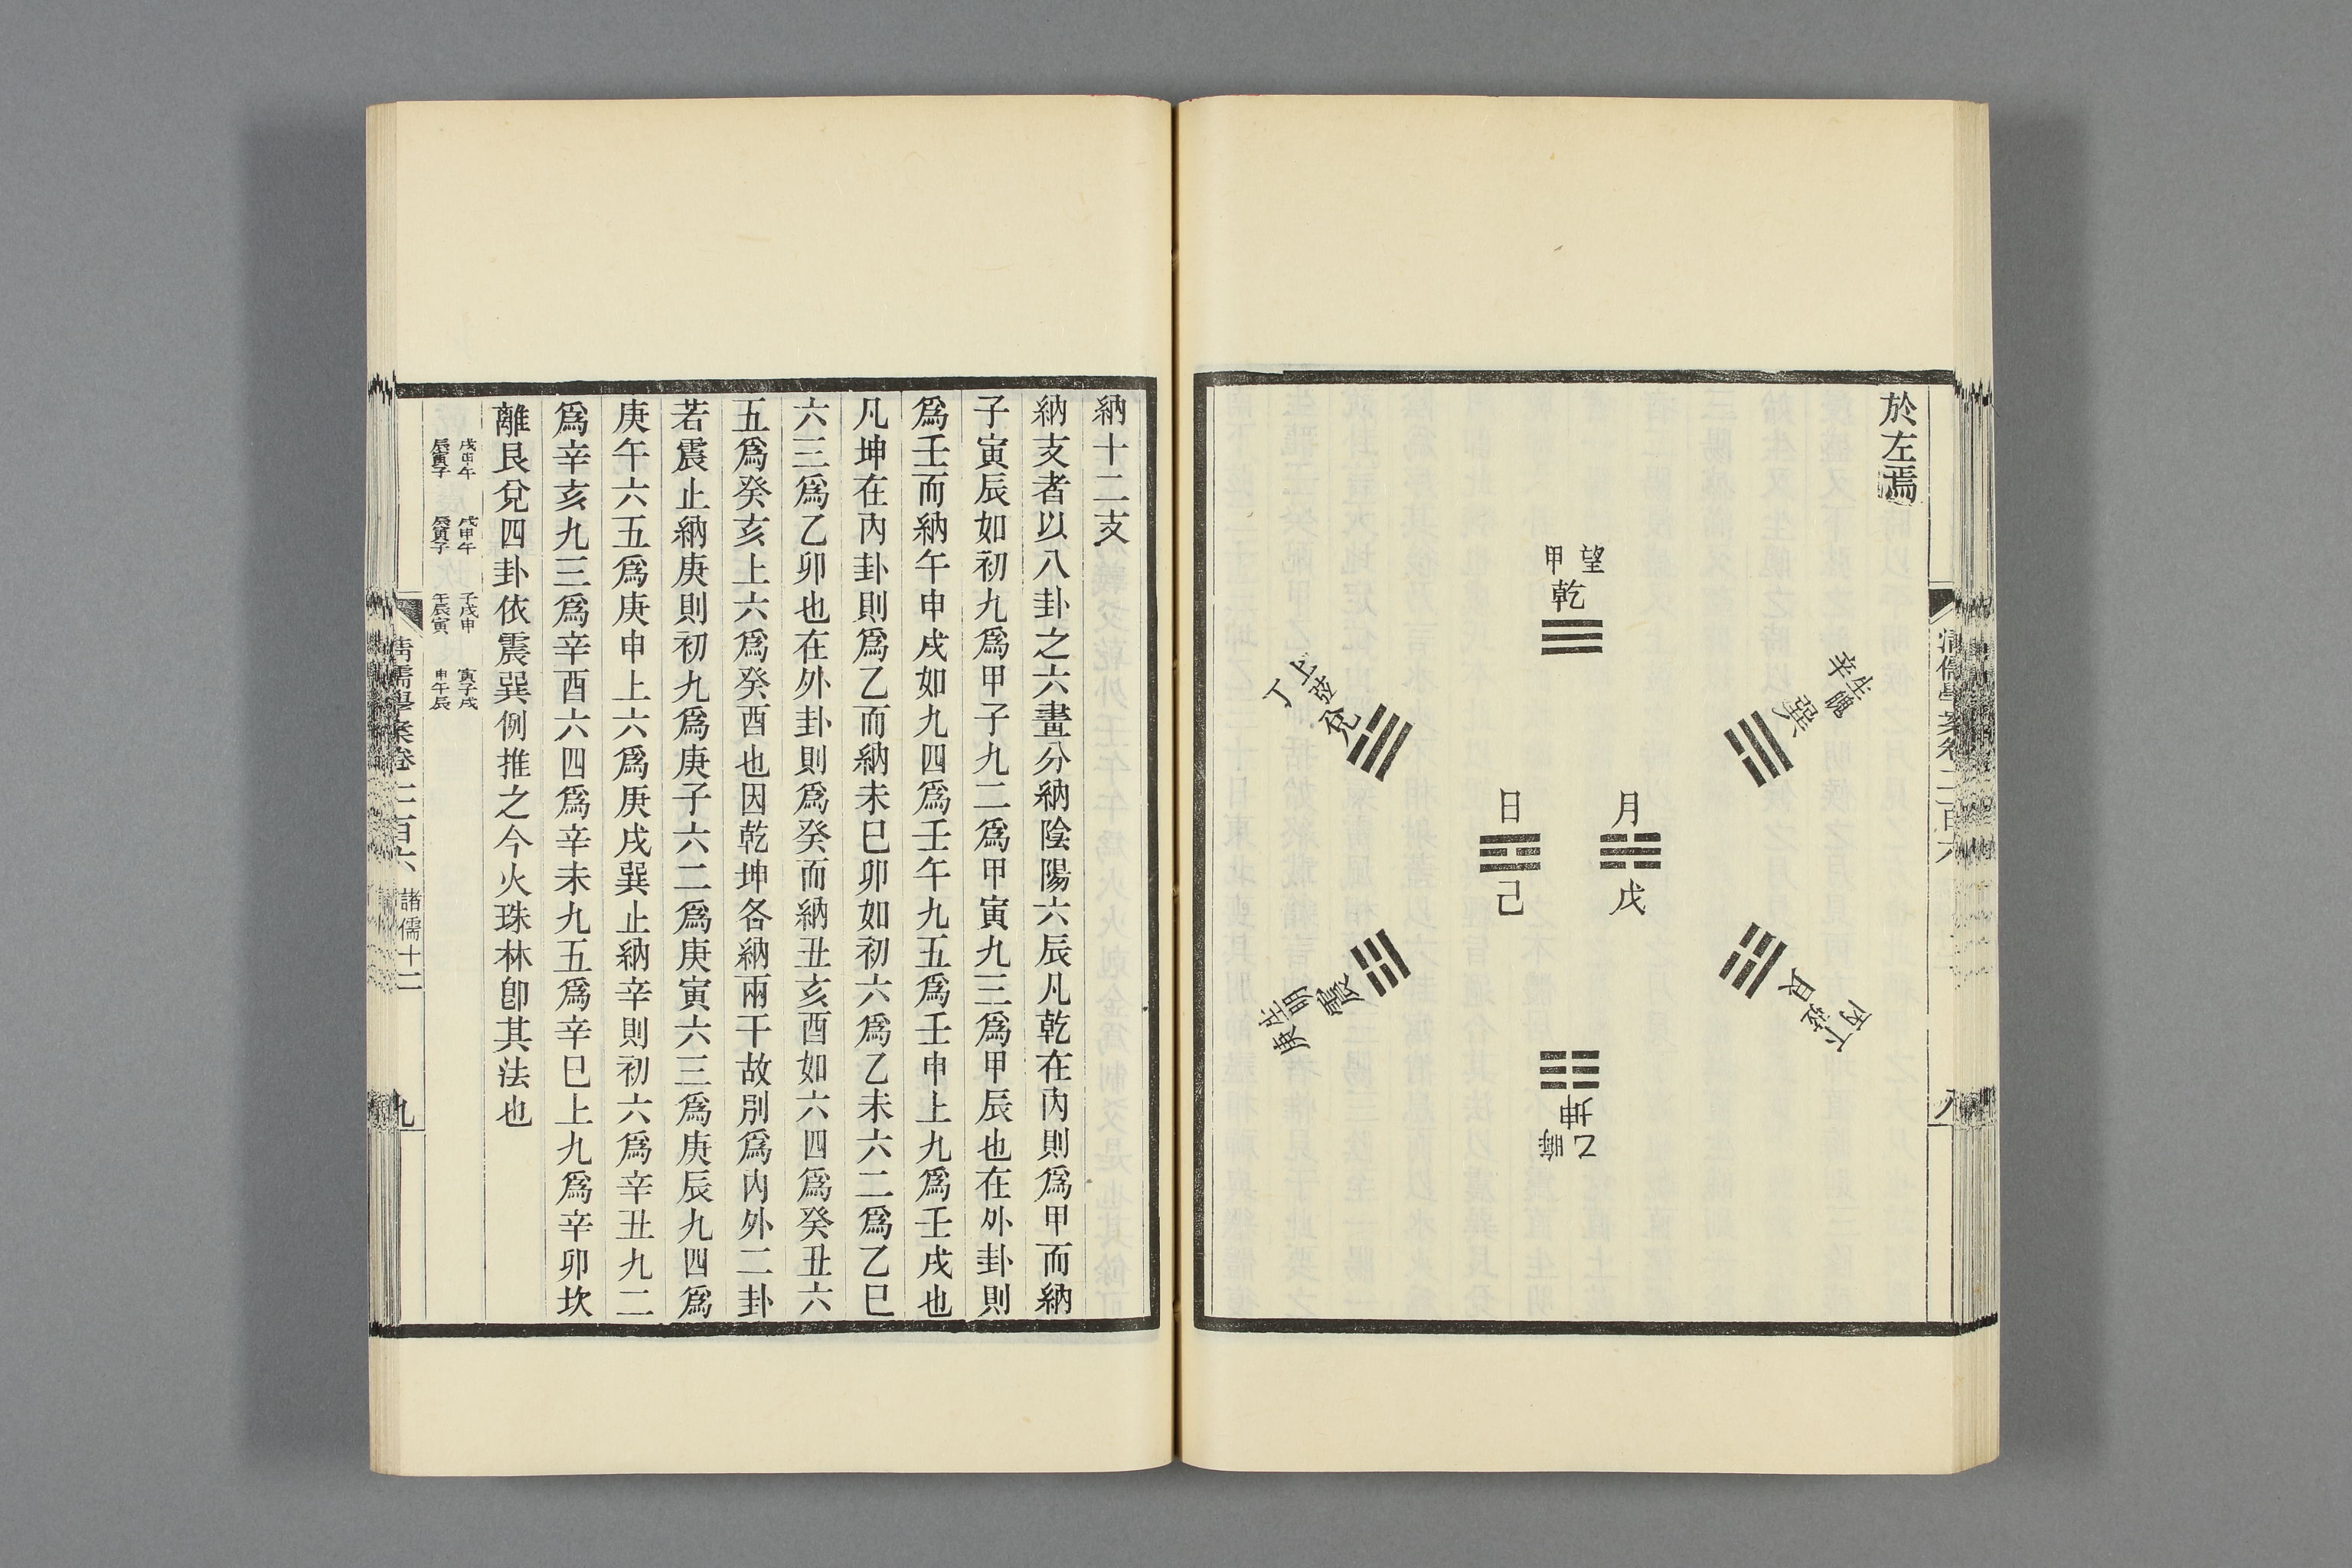 於左焉
望
甲
乾
生魄
辛
巽
上弦
丁
兌
月
戊
日
己
下弦
丙
艮
生明
庚
震
坤
乙
晦
清儒學案卷二百六
八
納十二支
納支者以八卦之六畫分納陰陽六辰凡乾在內則爲甲而納
子寅辰如初九爲甲子九二爲甲寅九三爲甲辰也在外卦則
爲壬而納午申戌如九四爲壬午九五爲壬申上九爲壬戌也
凡坤在內卦則爲乙而納未巳卯如初六爲乙未六二爲乙巳
六三爲乙卯也在外卦則爲癸而納丑亥酉如六四爲癸丑六
五爲癸亥上六爲癸酉也因乾坤各納兩干故別爲內外二卦
若震止納庚則初九爲庚子六二爲庚寅六三爲庚辰九四爲
庚午六五爲庚申上六爲庚戌巽止納辛則初六爲辛丑九二
爲辛亥九三爲辛酉六四爲辛未九五爲辛巳上九爲辛卯坎
離艮兌四卦依震巽例推之今火珠林卽其法也
戌申午 戌申午 子戌申 寅子戌
辰寅子 辰寅子 午辰寅 申午辰
清儒學案卷二百六 諸儒十二
九